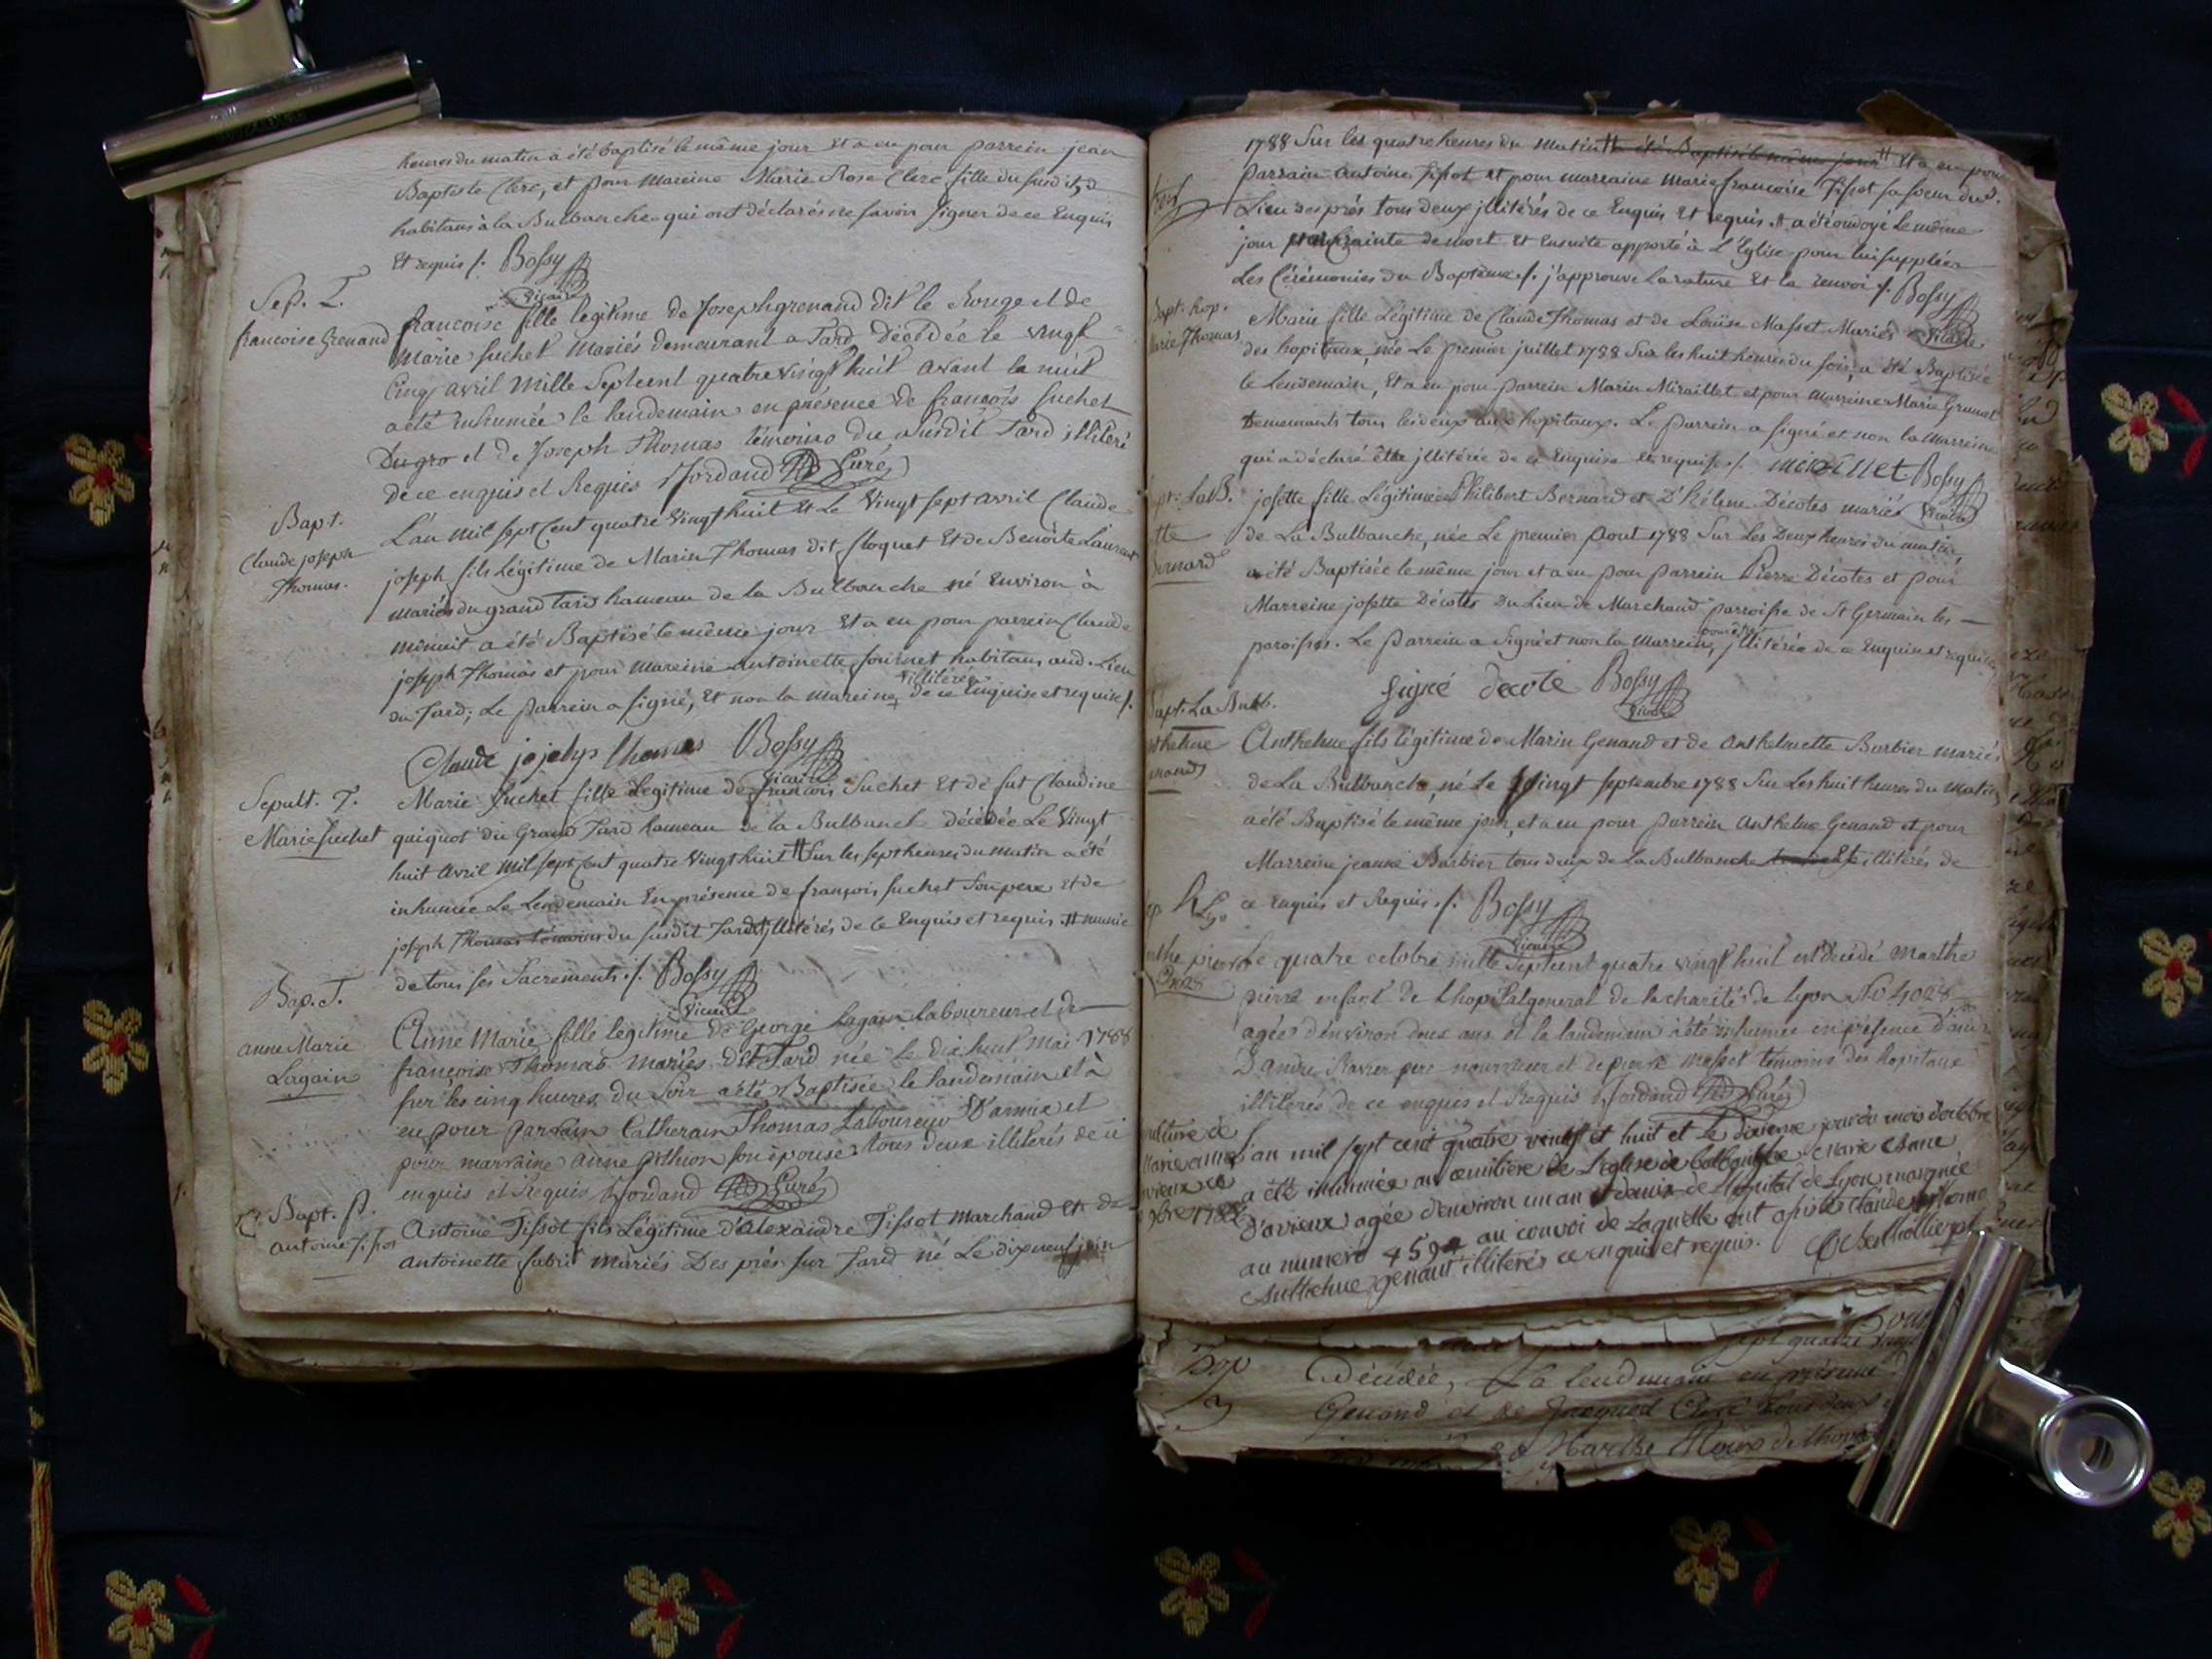 heures du matin a été baptisé le même jour et a eu pour parrein jean
Baptiste Clerc, et pour Mareine Marie Rose Clerc fille du susdit,
habitans à la Bulbanche qui ont déclarés ne savoir signer de ce Enquis
Et requis ./. Bossy
Vicaire
Sep. T.
francoise Grenand
francoise fille legitime de Joseph grenand dit le Rouge et de
Marie Suchet Mariés demeurant a Tard, Décédée le vingt
Cinq avril Mille Septcent quatre vingt huit avant la nuit
a été inhumée le landemain en présence de francois Suchet
Du gro et de Joseph Thomas témoins du susdit Tard illiteré
de ce enquis et Requis Jordand Curé
Bapt.
Claude joseph
Thomas.
L'an mil sept Cent quatre Vingt huit Et Le Vingt sept avril Claude
joseph fils Légitime de Marin Thomas dit floquet Et de Benoite Laurent
mariés du grand Tard hameau de la Bulbanche né Environ à
minuit a été Baptisé le même jour Et a eu pour parrein Claude
joseph Thomas et pour Mareine antoinette fournet habitans aud. Lieu
du Tard; Le parrein a signé, Et non la mareine illitérée de ce Enquise et requise ./.
Claude jojehp thomas Bossy
Vicaire
Sepult. T.
Marie Suchet
Marie Suchet fille Legitime de francois Suchet Et de fut Claudine
quiquot du Grand Tard hameau de la Bulbanch décédée Le Vingt
huit Avril Mil sept Cent quatre Vingt huit Sur les sept heures du Matin a été
inhumée Le Lendemain En présence de françois Suchet Son pere Et de
joseph Thomas témoins du susdit Tard illitérés de ce Enquis et requis # munie
de tous ses Sacrements ./. Bossy
Vicaire
Bap. T.
anne Marie
Lagain
Anne Marie fille legitime de George Lagain Laboureur et de
francoise Thomas mariés dit Tard née le dix huit Mai 1788
sur les cinq heures du Soir a été Baptisée le landemain et à
eu pour parrain Catherain Thomas Laboureur D'armix et
pour marraine anne pithion son épouse tous deux illiterés de ce
enquis et Requis Jordand Curé
Bapt. P.
antoine Tissot
Antoine Tissot fils Légitime d'alexandre Tissot Marchand Et de
antoinette fabri Mariés Des prés sur Tard né Le dix neuf juin
1788 Sur les quatre heures du Matin # a été Baptisé le même jour # Et a eu pour
parrain antoine Tissot et pour marraine Marie francoise Tissot sa soeur dud.
Lieu des prés tous deux illitérés de ce Enquis Et requis # a été ondoyé Le même
jour crainte de mort Et Ensuite apporté à L'Eglise pour lui suppléer
Les Cérémonies du Baptême ./. j'approuve La rature Et le renvoi ./. Bossy
Vicaire
Bapt. hop.
Marie Thomas
Marie fille Légitime de Claude Thomas et de Louïse Masset Mariés
des hopitaux, née Le premier juillet 1788 Sur les huit heures du soir, a été Baptisée
le Lendemain, Et a eu pour parrein Marin Miraillet et pour Marreine Marie
demeurants tous les deux aux hopitaux. Le parrein a signé et non la Marreine
qui a déclaré être illitérée de ce Enquise et requise ./. miraillet Bossy
Vicaire
Bapt. LaB.
Bernard
josette fille Légitime Philibert Bernard et D'hélene Décotes mariés
de La Bulbanche, née Le premier Aout 1788 Sur Les Deux heures du matin,
a été Baptisée le même jour et a eu pour parrein Pierre Décotes et pour
Marreine josette Décotes Du Lieu de Marchand parroisse de St Germain les
paroisses. Le Parrein a Signé et non la Marreine, pour être illitérée de ce Enquis et requise
Signé decote Bossy
Vicaire
Bapt. La Bulb.
Anthelme fils légitime de Marin Genand et de Anthelmette Barbier mariés
de La Bulbanche, né Le Vingt septembre 1788 Sur Les huit heures du Matin
a été Baptisé le même jour, et a eu pour parrein Anthelme Genand et pour
Marreine jeanne Barbier tous deux de La Bulbanche illitérés de
ce Enquis et Requis ./. Bossy
Vicaire
Le quatre octobre mille Septcent quatre vingt huit est décédé Marthe
pierre enfant de Lhopital general de la charité de lyon No 4028
agée d'environ deux ans et le landemain a été inhumée en présence
D'andre Ravier pere nourricier et de pierre Masset témoins des hopitaux
illiterés de ce enquis et Requis Jordand Curé
L'an mil sept cent quatre vingt et huit et le dixieme jour du mois d'octobre
a été inhumée au cemitière de L'eglise de bulbanche Marie Anne
D'avieux agée d'environ un an et demix de l'hopital de Lyon marquée
au numero 4594 au convoi de Laquelle ont assisté Claude thomas
Anthelme genant illiterés ce enquis et requis.
sept quatre vingt
Décédée, La lendmain en présence
Genand et de Jacques Clerc tous deux